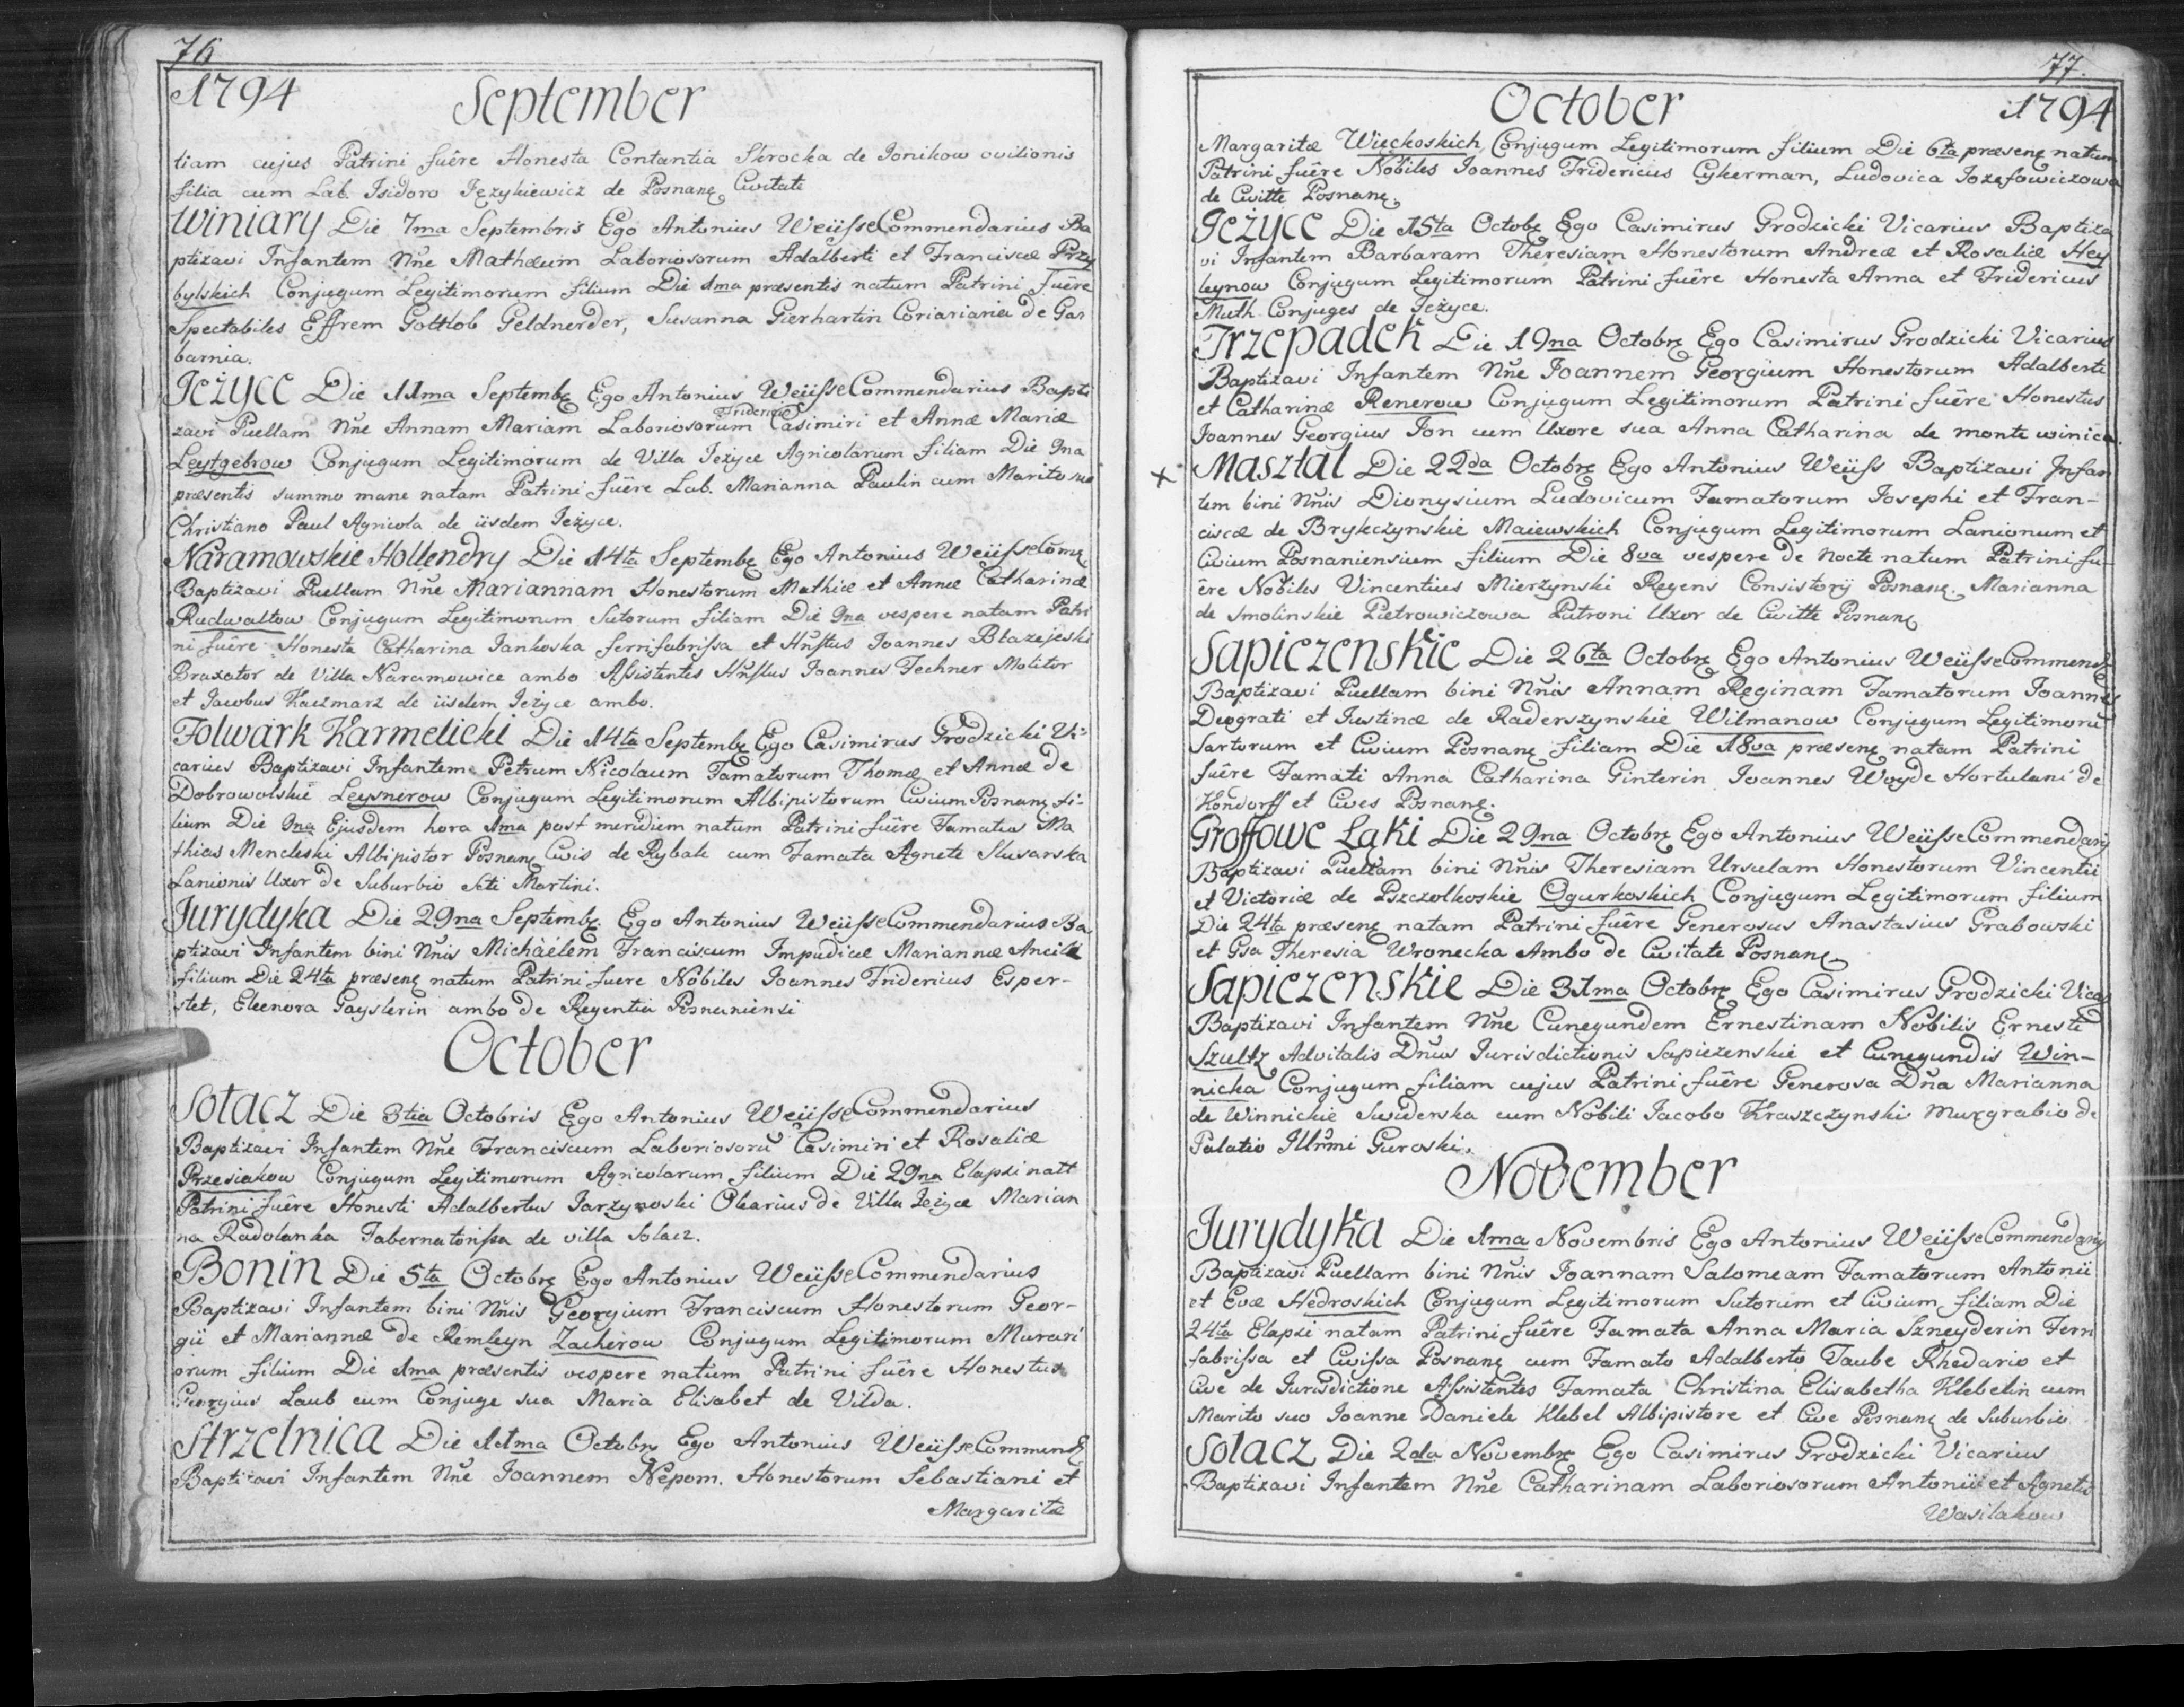 76
1794 September
tiam cujus Patrini fuêre Honesta Contantia Skrocka de Jonikow ovilionis
filia cum Lab. Isidoro Językiewicz de Posnanę Civitate
Winiary Die 7ma Septembris Ego Antonius Weüsse Commendarius Ba
ptizavi Infantem Nn̄e Mathæum Laboriosorum Adalberti et Franciscæ Przy
bylskich Conjugum Legitimorum filium Die 1ma præsentis natum Patrini fuêre
Spectabiles Effrem Gottlob Geldnerder, Susanna Gierhartin Coriariania de Gar
barnia.
Jeżyce Die 11ma Septembę Ego Antonius Weüsse Commendarius Bapti
zavi Puellam Nn̄e Annam Mariam Laboriosorum Friderici Casimiri et Annæ Mariæ
Leytgebrow Conjugum Legitimorum de Villa Jeżyce Agricolarum filiam Die 9na
præsentis summo mane natam Patrini fuêre Lab. Marianna Paulin cum Marito suo
Christiano Paul Agricola de iisdem Jeżyce.
Naramowskie Hollendry Die 14ta Septembę Ego Antonius Weüsse Comę
Baptizavi Puellam Nn̄e Mariannam Honestorum Mathiæ et Annæ Catharinæ
Rudwaltow Conjugum Legitimorum Sutorum filiam Die 9na vespere natam Patri
ni fuêre Honesta Catharina Jankoska ferrifabrissa et Hn̄stus Joannes Błazejeski
Braxator de Villa Naramowice ambo Assistentes Hn̄stus Joannes Techner Molitor
et Jacobus Kaczmarz de iisdem Jeżyce ambo.
Folwark Karmelicki Die 14ta Septembę Ego Casimirus Grodzicki Vi=
carius Baptizavi Infantem Petrum Nicolaum Famatorum Thomæ et Annæ de
Dobrowolskie Leysnerow Conjugum Legitimorum Albipistorum Civium Posnanę fi=
lium Die 9na Ejusdem hora 1ma post meridiem natum Patrini fuêre Famatus Ma
thias Mencleski Albipistor Posnanę Civis de Rybaki cum Famata Agnete Slusarska
Lanionis Uxor de Suburbio Scti Martini.
Jurydyka Die 29na Septembę Ego Antonius Weüsse Commendarius Ba
ptizavi Infantem bini Nn̄is Michaelem Franciscum Impudicæ Mariannæ Ancillæ
filium Die 24ta præsenę natum Patrini fuere Nobiles Joannes Fridericus Esper-
stet, Eleenora Gayslerin ambo de Regentia Posnaniensi
October
Sołacz Die 3tia Octobris Ego Antonius Weüsse Commendarius
Baptizavi Infantem Nn̄e Franciscum Laboriosorū Casimiri et Rosaliæ
Przesiakow Conjugum Legitimorum Agricolarum filium Die 29na Elapsi natt
Patrini fuêre Honesti Adalbertus Jarzynoski Olearius de Villa Jeżyce Marian
na Radolanka Tabernatorissa de villa Solacz.
Bonin Die 5ta Octobrę Ego Antonius Weüsse Commendarius
Baptizavi Infantem bini Nn̄is Georgium Franciscum Honestorum Geor-
gii et Mariannæ de Remleyn Zacherow Conjugum Legitimorum Murari
orum filium Die 1ma præsentis vespere natum Patrini fuêre Honestus
Georgius Laub cum Conjuge sua Maria Elisabet de Vilda.
Strzelnica Die 11ma Octobrę Ego Antonius Weüsse Commendę
Baptizavi Infantem Nn̄e Joannem Nepom. Honestorum Sebastiani et
Margaritæ
77.
October 1794
Margaritæ Więckoskich, Conjugum Legitimorum filium Die 6ta præsenę natum
Patrini fuêre Nobiles Joannes Fridericus Cykerman, Ludovica Jozefowiczowa
de Civitte Posnanę.
Jeżyce Die 15ta Octobę Ego Casimirus Grodzicki Vicarius Baptiza
vi Infantem Barbaram Theresiam Honestorum Andreæ et Rosaliæ Hey
leynow Conjugum Legitimorum Patrini fuêre Honesta Anna et Fridericus
Muth Conjuges de Jeżyce.
Trzepadek Die 19na Octobrę Ego Casimirus Grodzicki Vicarius
Baptizavi Infantem Nn̄e Joannem Georgium Honestorum Adalberti
et Catharinæ Renerow Conjugum Legitimorum Patrini fuêre Honestus
Joannes Georgius Jon cum Uxore sua Anna Catharina de monte winica.
x Masztal Die 22da Octobrę Ego Antonius Weüss Baptizavi Infan
tem bini Nn̄is Dionysium Ludovicum Famatorum Josephi et Fran-
ciscæ de Brykczynskie Maiewskich Conjugum Legitimorum Lanionum et
Civium Posnaniensium filium Die 8va vespere de nocte natum Patrini fu-
êre Nobiles Vincentius Mierzynski Regens Consistorij Posnanę. Marianna
de Smolinskie Pietrowiczowa Patroni Uxor de Civitte Posnanę
Sapiezenskie Die 26ta Octobrę Ego Antonius Weüsse Commendę
Baptizavi Puellam bini Nn̄is Annam Reginam Famatorum Joannis
Deograti et Justinæ de Raderszynskie Wilmanow Conjugum Legitimorū
Sartorum et Civium Posnanę filiam Die 18va præsenę natam Patrini
fuêre Famati Anna Catharina Ginterin Joannes Woyde Hortulani de
Kondorff et Cives Posnanę.
Groffowe Łąki Die 29na Octobrę Ego Antonius Weüsse Commendarij
Baptizavi Puellam bini Nn̄is Theresiam Ursulam Honestorum Vincentii
et Victoriæ de Pszczolkoskie Ogurkoskich Conjugum Legitimorum filium
Die 24ta præsenę natam Patrini fuêre Generosus Anastasius Grabowski
et Gsa Theresia Wronecka Ambo de Civitate Posnanę
Sapiezenskie Die 31ma Octobrę Ego Casimirus Grodzicki Vicarę
Baptizavi Infantem Nn̄e Cunegundem Ernestinam Nobilis Ernesti
Szultz Advitalis Dn̄us Jurisdictionis Sapiezenskie et Cunegundis Win-
nicka Conjugum filiam cujus Patrini fuêre Generosa Dn̄a Marianna
de Winnickie Swiderska cum Nobili Jacobo Kraszczynski Murgrabio de
Palatio Illr̄mi Guroski.
November
Jurydyka Die 1ma Novembris Ego Antonius Weüsse Commendarij
Baptizavi Puellam bini Nn̄is Joannam Salomeam Famatorum Antonii
et Evæ Hedroskich Conjugum Legitimorum Sutorum et Civium filiam Die
24ta Elapsi natam Patrini fuêre Famata Anna Maria Szneyderin Ferri
fabrissa et Civissa Posnanę cum Famato Adalberto Taube Rhedario et
Cive de Jurisdictione Assistentes Famata Christina Elisabetha Klebelin cum
Marito suo Joanne Daniele Klebel Albipistore et Cive Posnanę de Suburbio
Sołacz Die 2da Novembrę Ego Casimirus Grodzicki Vicarius
Baptizavi Infantem Nn̄e Catharinam Laboriosorum Antonii et Agnetis
Wasilakow